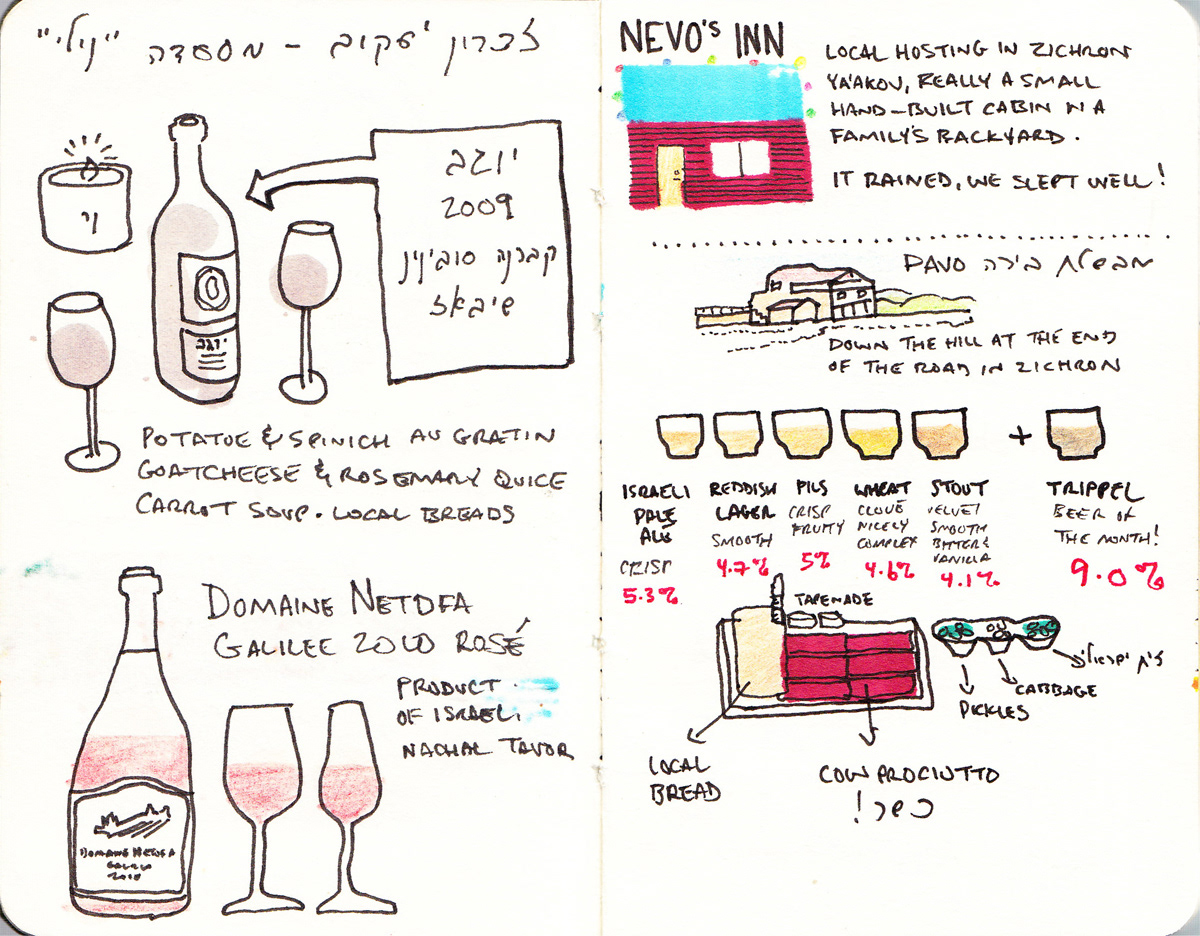 זכרון יעקוב - מסעדה "נילי"
יוגב
2009
קברנה סוביניון
שיבאז
יוגב
POTATOE & SPINICH AU GRATIN
GOATCHEESE & ROSEMARY QUICE
CARROT SOUP. LOCAL BREADS
DOMAINE NETOFA
GALILEE 2010 ROSÉ
PRODUCT
OF ISRAEL,
NACHAL TAVOR
DOMAINE NETOFA
GALILEE
2010
NEVO'S INN
LOCAL HOSTING IN ZICHRON
YA'AKOV, REALLY A SMALL
HAND-BUILT CABIN IN A
FAMILY'S BACKYARD.
IT RAINED, WE SLEPT WELL!
מבשלת בירה PAVO
DOWN THE HILL AT THE END
OF THE ROAD IN ZICHRON
+
ISRAELI
PALE
ALE
CRISP
5.3%
REDDISH
LAGER
SMOOTH
4.7%
PILS
CRISP
FRUITY
5%
WHEAT
CLOVE
NICELY
COMPLEX
4.6%
STOUT
VELVET
SMOOTH
BITTER &
VANILLA
4.1%
TRIPPEL
BEER OF
THE MONTH!
9.0%
TAPENADE
זית ישראלי
CABBAGE
PICKLES
LOCAL
BREAD
COW PROCIUTTO
כשר!